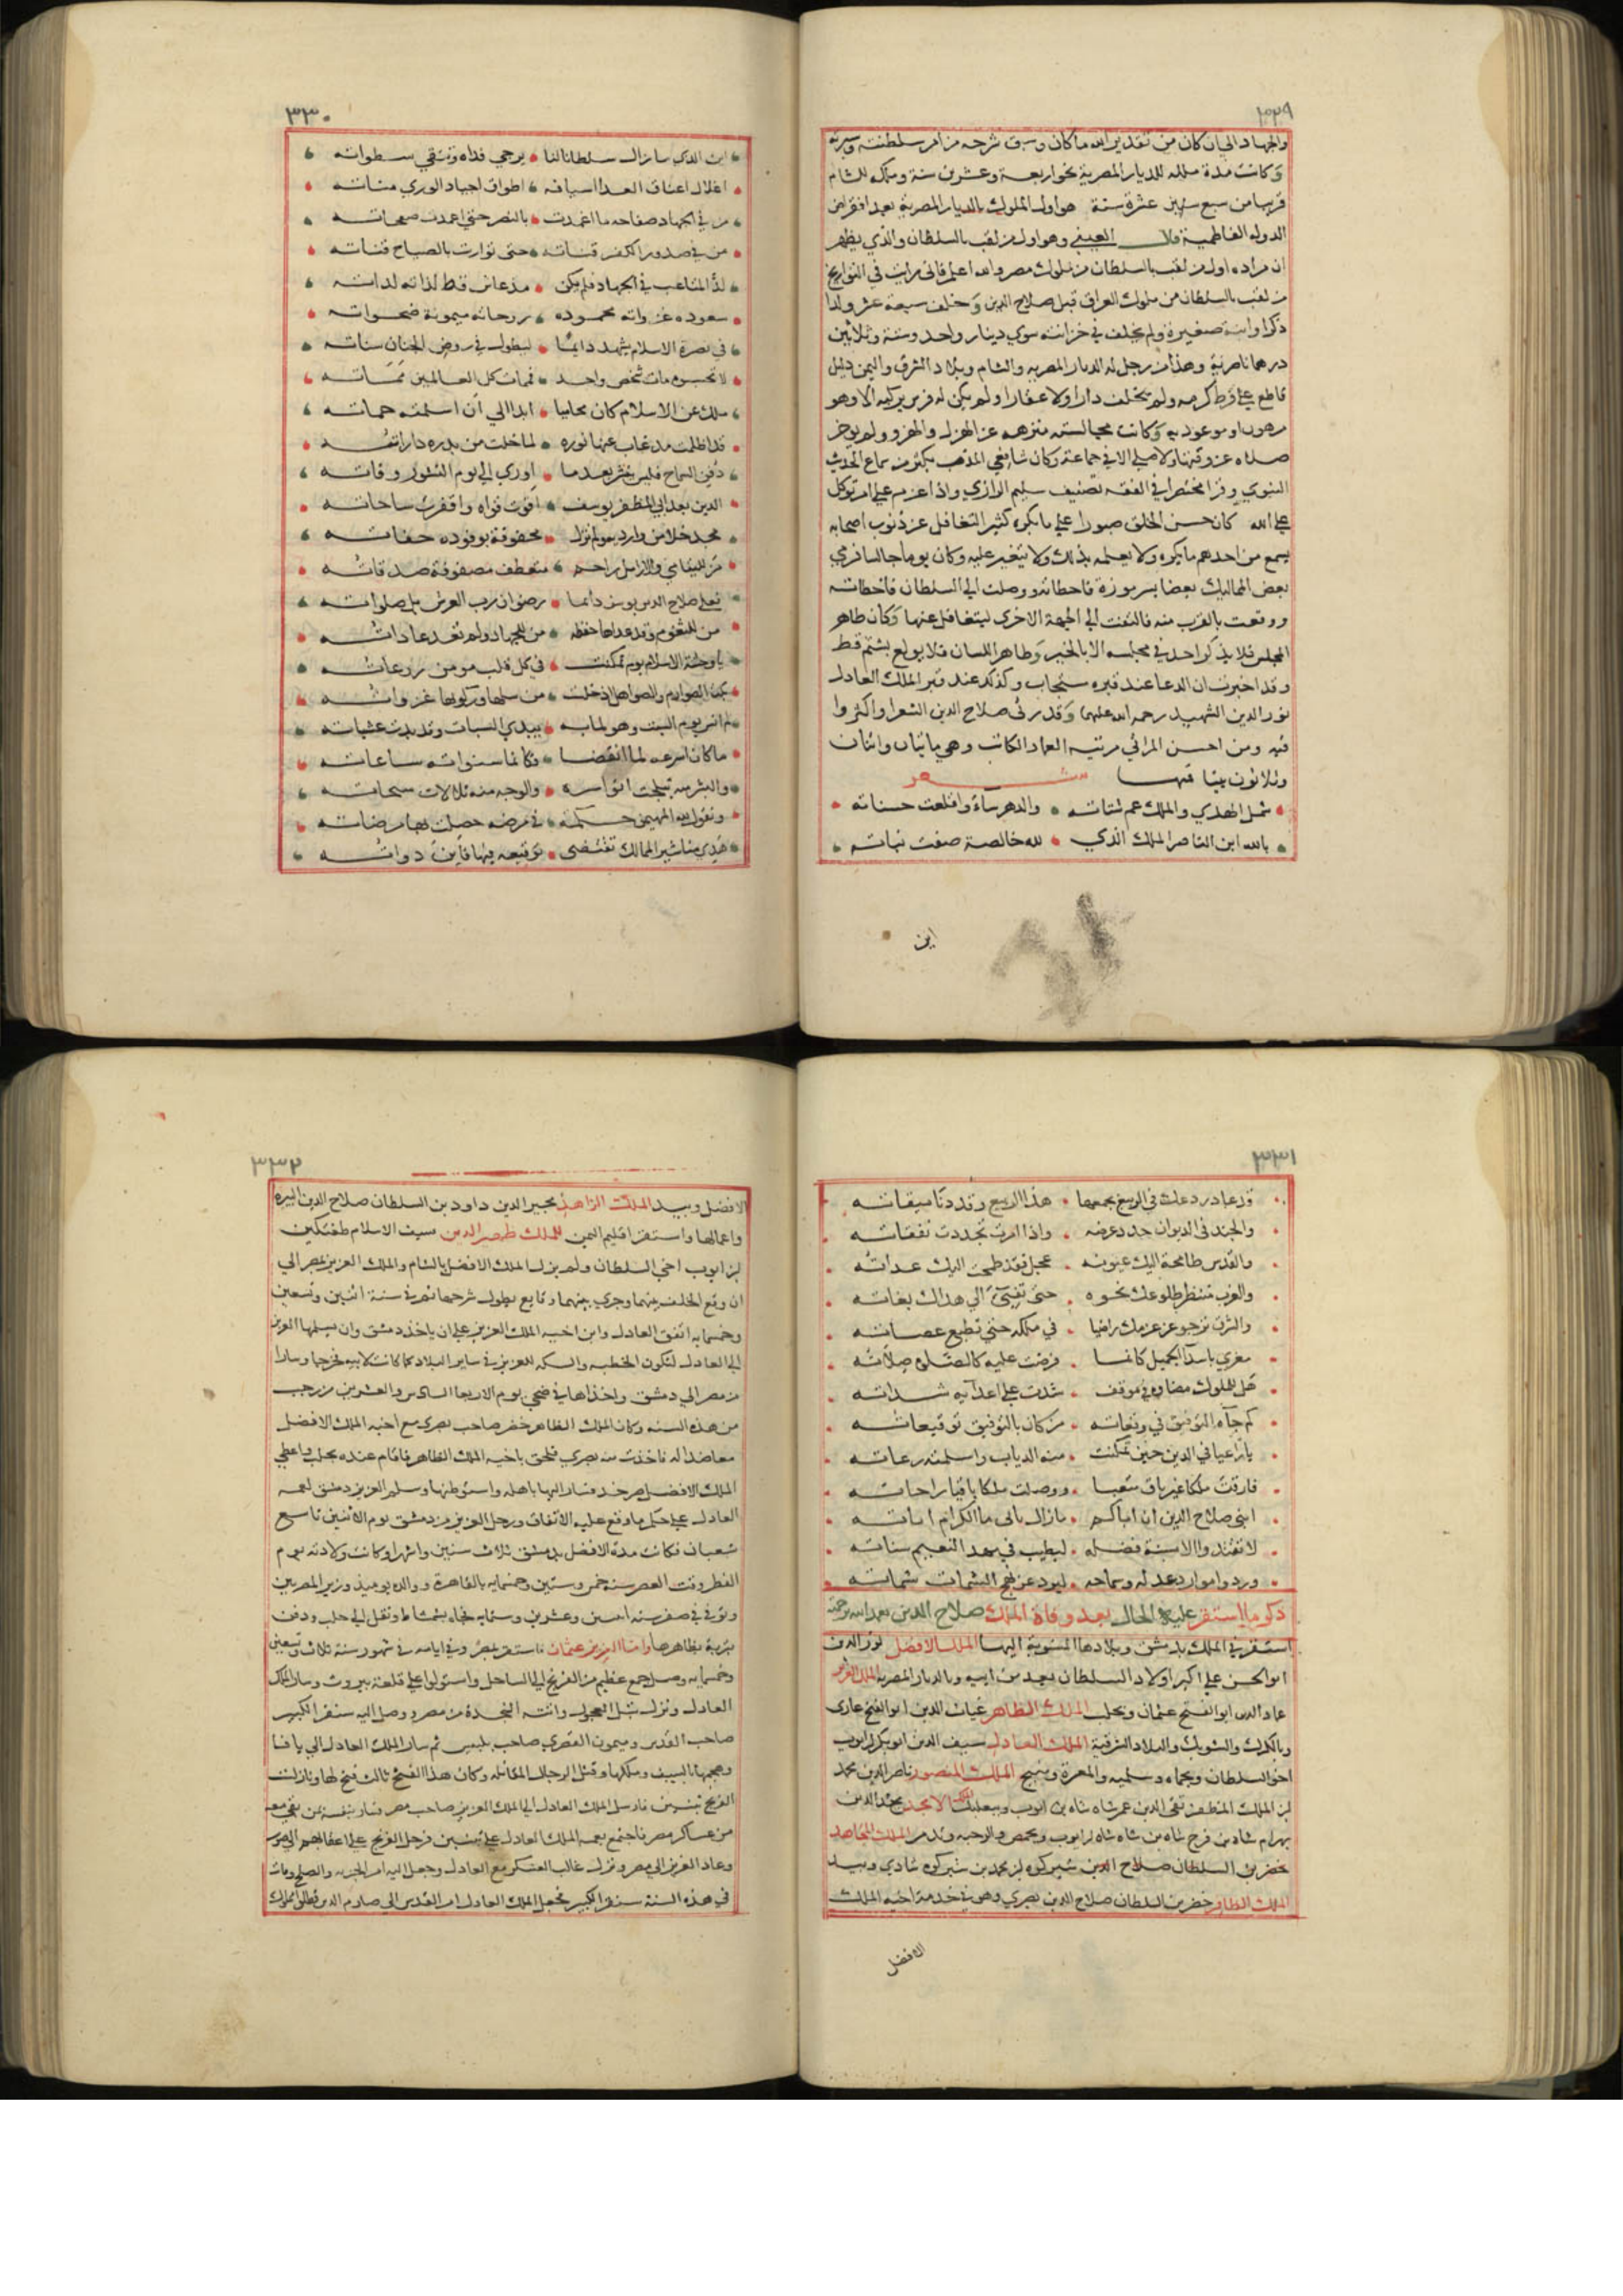 ٣٢٩
والجهاد الي ان كان من تقدير الله ما كان وسبق شرحه من امر سلطنته وسيرته
وكانت مدة ملكه للديار المصرية نحو اربعة وعشرين سنة وملكه للشام
قريبا من سبع عشرة سنة هو اول الملوك بالديار المصرية بعد انقراض
الدوله الفاطمية قلا العيني وهو اول من لقب بالسلطان والذي يظهر
ان مراده اول من لقب بالسلطان من ملوك مصر والله اعلم فاني رايت في التواريخ
من لقب بالسلطان من ملوك العراق قبل صلاح الدين وخلف سبعة عشر ولدا
ذكرا وابنة صغيرة ولم يخلف في خزانته سوي دينار واحد وستة وثلاثين
درهما ناصرية وهذا من رجل له الديار المصريه والشام وبلاد الشرق واليمن دليل
قاطع علي فرط كرمه ولم يخلف دارا ولا عقارا ولم يكن له فرس يركبه الا وهو
مرهون او موعود به وكانت مجالسته منزهه عن الهزل والهزو ولم يوخر
صلاه عن وقتها ولا صلي الا في جماعة وكان شافعي المذهب يكثر من سماع الحديث
النبوي وقرا مختصرا في الفقه تصنيف سليم الرازي واذا عزم علي امر توكل
علي الله كان حسن الخلق صبورا علي ما يكره كثير التغافل عن ذنوب اصحابه
يسمع من احدهم ما يكره ولا يعلمه بذلك ولا يتغير عليه وكان يوما جالسا فرمي
بعض المماليك بعضا بسرموزة فاخطاته ووصلت الي السلطان فاخطاته
ووقعت بالقرب منه فالتفت الي الجهة الاخري ليتغافل عنها وكان طاهر
المجلس فلا يذكر احد في مجلسه الا بالخير وطاهر اللسان فلا يولع بشتم قط
وقد اخبرت ان الدعا عند قبره مستجاب وكذلك عند قبر الملك العادل
نور الدين الشهيد رحمة الله عليهما وقد رثي صلاح الدين الشعرا واكثروا
فيه ومن احسن المراثي مرثيه العماد الكاتب وهي مايتان واثنان
وثلاثون بيتا فمنها شعر
شمل الهدي والملك عم شتاته والدهر ساء واقلعت حسناته
بالله اين الناصر الملك الذي لله خالصة صفت نياته
اين
٣٣٠
اين الذي ما زال سلطانا لنا يرجي نداه وتتقي سطواته
اغلال اعناق العدا اسيافه اطواق اجياد الوري مناته
من في الجهاد صفاحه ما اغمدت بالنصر حتي اغمدت صفحاته
من في صدور الكفر قناته حتي توارت بالصباح قناته
لذ المتاعب في الجهاد فلم يكن مذ عاش قط لذاته لداته
مسعوده غدواته محموده روحاته ميمونة ضحواته
في نصرة الاسلام يشهد دايما ليطول في روض الجنان سناته
لا تحسبوه مات شخص واحد فممات كل العالمين مماته
ملك عن الاسلام كان محاميا ابدا الي ان اسلمته حماته
قد اظلمت مذ غاب عنها نوره لما خلت من بدره داراته
دفن السماح فليس ينشر بعدما اودي الي يوم النشور رفاته
الدين بعد ابي المظفر يوسف اقوت قواه واقفرت ساحاته
من لليتامي والارامل راحم متعطف مصفوفة صدقاته
فعلي صلاح الدين يوسف دايما رضوان رب العرش بل صلواته
من للثغور وقد عداها حفظه من للجهاد ولم تعد عاداته
يا وحشة الاسلام يوم تمكنت في كل قلب مومن روعاته
ما كان اسرعه لما انقضا فكانما سنواته ساعاته
والبشر منه تبلجت انواره والوجه منه تلالات سبحاته
وتقول لله المهيمن حكمه في مرضه حصلت بها مرضاته
هذي مناشير الممالك تقتضي توقيعه فيها فاين دواته
٣٣١
قد عاد زرعك في الربيع بجمعها هذا الربيع وقد دنا ميقاته
والجند في الديوان جدد عرضه واذا امرت تجددت نفقاته
والقدس طامحة اليك عيونه عجل فقد طمحت اليك عداته
والغرب منتظر طلوعك نحوه حتي تفي الي هداك بغاته
والشرق يرجو عز عزمك راضيا في ملكه حتي تطيع عصاته
مغري باسدا الجميل كانما فرضت عليه كالصلوة صلاته
هل للملوك مضاؤه في موقف شدت علي اعدايه شداته
كم جاه التوفيق في وقعاته من كان بالتوفيق توقيعاته
يا راعيا في الدين حين تمكنت منه الدياب واسلمته رعاته
فارقت ملكا غير باق متعبا ووصلت ملكا باقيا راحاته
ابني صلاح الدين ان اباكم ما زال يابي ما الكرام اباته
لا تقتدوا الا بسنة فضله ليطيب في مهد النعيم سناته
وردوا موارد عدله وسماحه ليود عن نهج الشمات شماته
ذكر ما استقر عليه الحال بعد وفاة الملك صلاح الدين تغمده الله برحمته
استقر في الملك بدمشق وبلادها المنسوبة اليها الملك الافضل نور الدين
ابو الحسن علي اكبر اولاد السلطان بعهد من ابيه وبالديار المصريه الملك العزيز
عماد الدين ابو الفتح عثمان وبحلب الملك الظاهر غياث الدين ابو الفتح غازي
وبالكرك والشوبك والبلاد الشرقية الملك العادل سيف الدين ابو بكر بن ايوب
اخو السلطان وبحماه وسلميه والمعرة ومنبج الملك المنصور ناصر الدين محمد
ابن الملك المظفر تقي الدين عمر شاه شاه بن ايوب وببعلبك الملك الامجد مجد الدين
بهرام شاه بن فرخ شاه بن شاه شاه بن ايوب وبحمص والرحبه وتدمر الملك المجاهد
بن السلطان صلاح الدين شيركوه بن محمد بن شيركوه شادي وبيد
الملك الظافر خضر بن السلطان صلاح الدين بصري وهو في خدمة اخيه الملك
الافضل
٣٣٢
الافضل وبيد الملك الزاهد مجير الدين داود بن السلطان صلاح الدين البيرة
واعمالها واستقر اقليم اليمن للملك ظهير الدين سيف الاسلام طغتكين
ابن ايوب اخي السلطان ولم يزل الملك الافضل بالشام والملك العزيز بمصر الي
ان وقع الخلف بينهما وجري بينهما وقايع يطول شرحها ثم في سنة اثنين وتسعين
وخمسمايه اتفق العادل وابن اخيه الملك العزيز علي ان ياخذ دمشق وان يسلمها العزيز
الي العادل لتكون الخطبه والسكه للعزيز في ساير البلاد كما كانت لابيه فخرجا وسارا
من مصر الي دمشق واخذاها في ضحي يوم الاربعا السادس والعشرين من رجب
من هذه السنه وكان الملك الظاهر خضر صاحب بصري مع اخيه الملك الافضل
معاضدا له فاخذت منه بصري فلحق باخيه الملك الظاهر فاقام عنده بحلب واعطي
الملك الافضل صرخد فسار اليها باهله واستوطنها وسلم العزيز دمشق لعمه
العادل علي حكم ما وقع عليه الاتفاق ورحل العزيز من دمشق يوم الاثنين تاسع
شعبان فكانت مدة الافضل بدمشق ثلاث سنين واشهرا وكانت ولادته يوم
الفطر وقت العصر سنة خمس وستين وخمسمايه بالقاهرة ووالده يوميذ وزير المصريين
وتوفي في صفر سنه اثنين وعشرين وستمايه فجاه بشمشاط ونقل الي حلب ودفن
بتربة بظاهرها واما العزيز عثمان فاستقر بمصر وفي ايامه في شهور سنة ثلاث وتسعين
وخمسمايه وصل جمع عظيم من الفرنج الي الساحل واستولوا علي قلعة بيروت وسار الملك
العادل ونزل بتل العجول واتته النجدة من مصر ووصل اليه سنقر الكبير
صاحب القدس وميمون القصري صاحب بلبيس ثم سار الملك العادل الي يافا
وهجمها بالسيف وملكها وقتل الرجال المقاتله وكان هذا الفتح ثالث فتح لها ونازلت
الفرنج تبنين فارسل الملك العادل الي الملك العزيز صاحب مصر فسار بنفسه بمن بقي معه
من عساكر مصر فاجتمع بعمه الملك العادل علي تبنين فرحل الفرنج علي اعقابهم الي صور
وعاد العزيز الي مصر وترك غالب العسكر مع العادل وجعل اليه امر الحرب والصلح ومات
في هذه السنة سنقر الكبير فجعل الملك العادل امر القدس الي صارم الدين قطلق مملوك